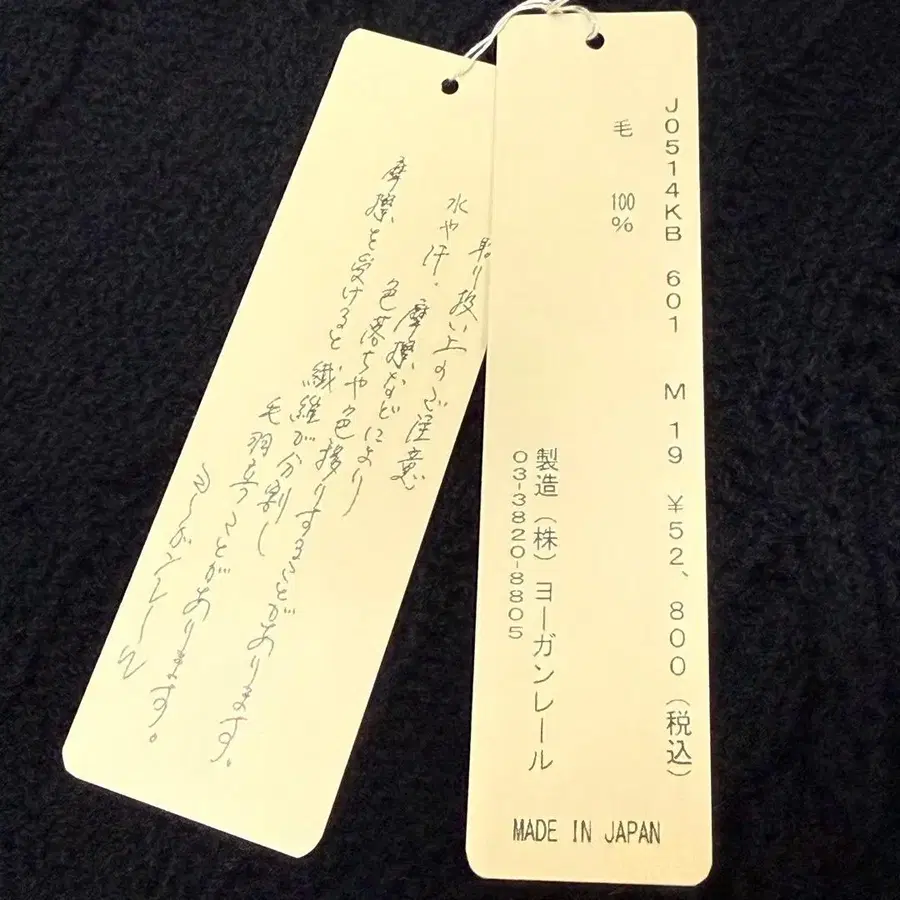 J0514KB 601 M 19 ¥52、800（税込）
毛 100%
製造（株）ヨーガンレール
03-3820-8805
MADE IN JAPAN
取り扱い上のご注意
水や汗・摩擦などにより
色落ちや色移りすることがあります。
摩擦を受けると繊維が分割し
毛羽立つことがあります。
ヨーガンレール